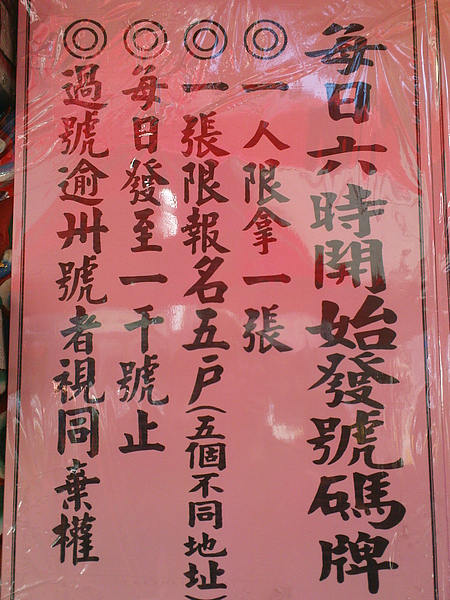 每日六時開始發號碼牌
◎一人限拿一張
◎一張限報名五戶(五個不同地址)
◎每日發至一千號止
◎過號逾卅號者視同棄權